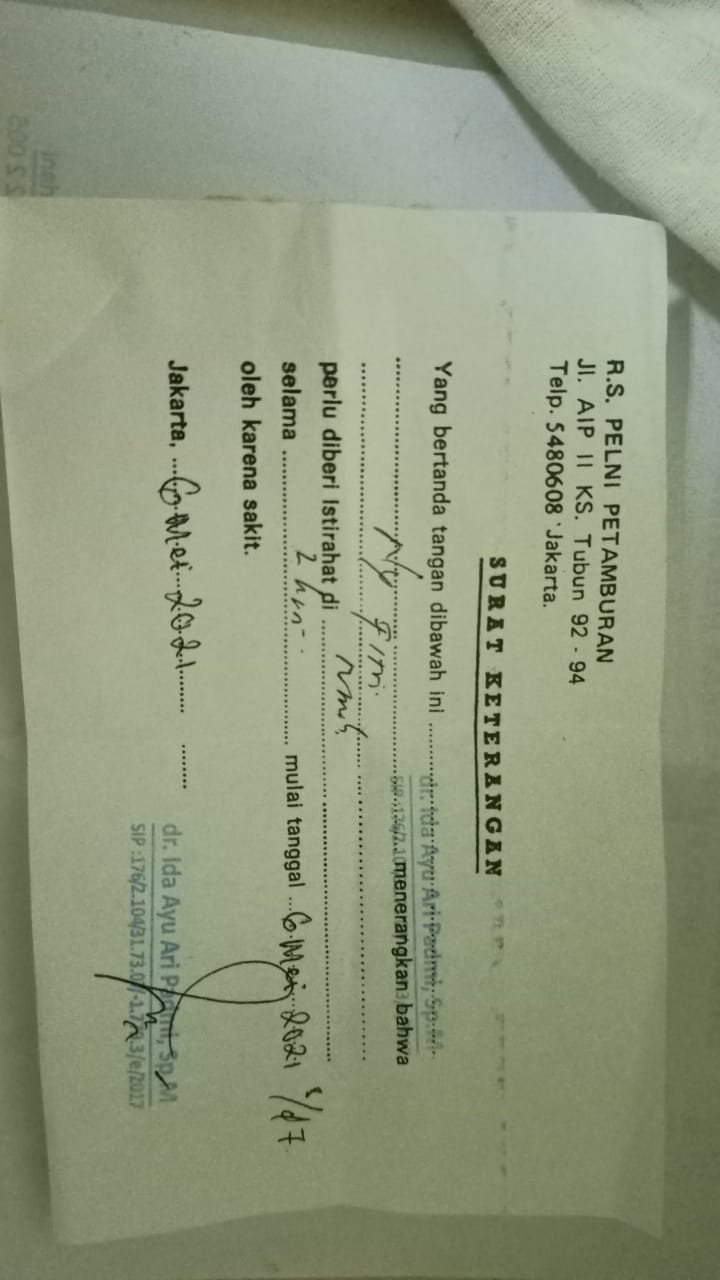 R.S. PELNI PETAMBURAN
Jl. AIP II KS. Tubun 92 - 94
Telp. 5480608 Jakarta.
SURAT KETERANGAN
Yang bertanda tangan dibawah ini ........ dr. Ida Ayu Ari Padmi, Sp.M
menerangkan bahwa
Ny Fitri
perlu diberi Istirahat di
selama 2 hari mulai tanggal 6 Mei 2021 s/d 7
oleh karena sakit.
Jakarta, 6 Mei 2021
dr. Ida Ayu Ari Padmi, Sp.M